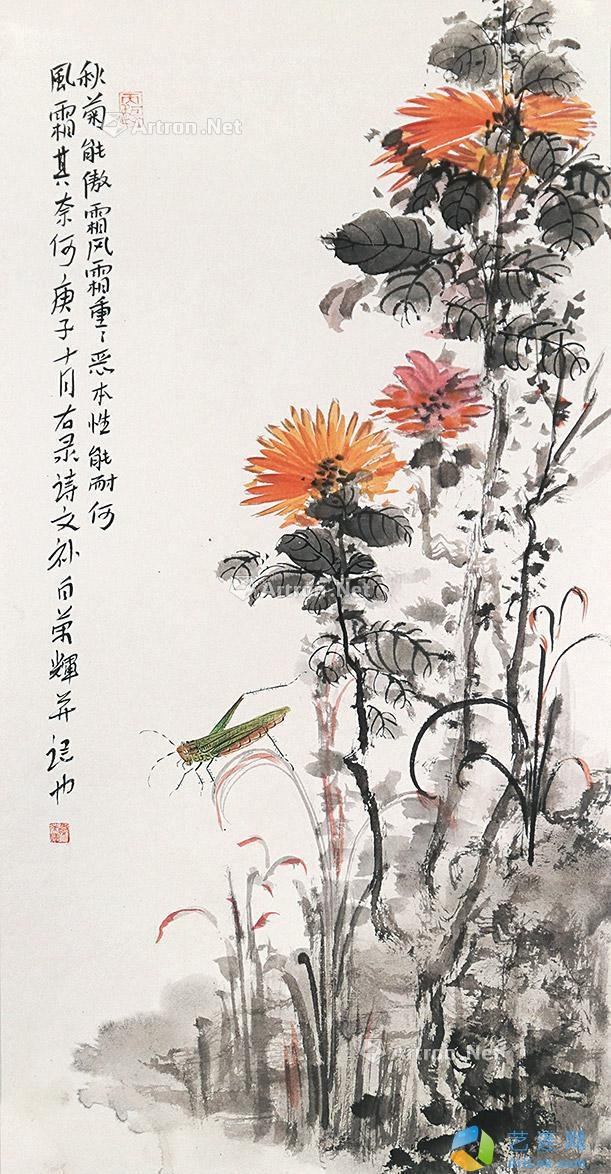 秋菊能傲霜风霜重〻恶本性能耐何
風霜其奈何庚子十月右录诗文补白荣輝并记也
Artron.Net
Artron.Net
Artron.Net
Artron.Net